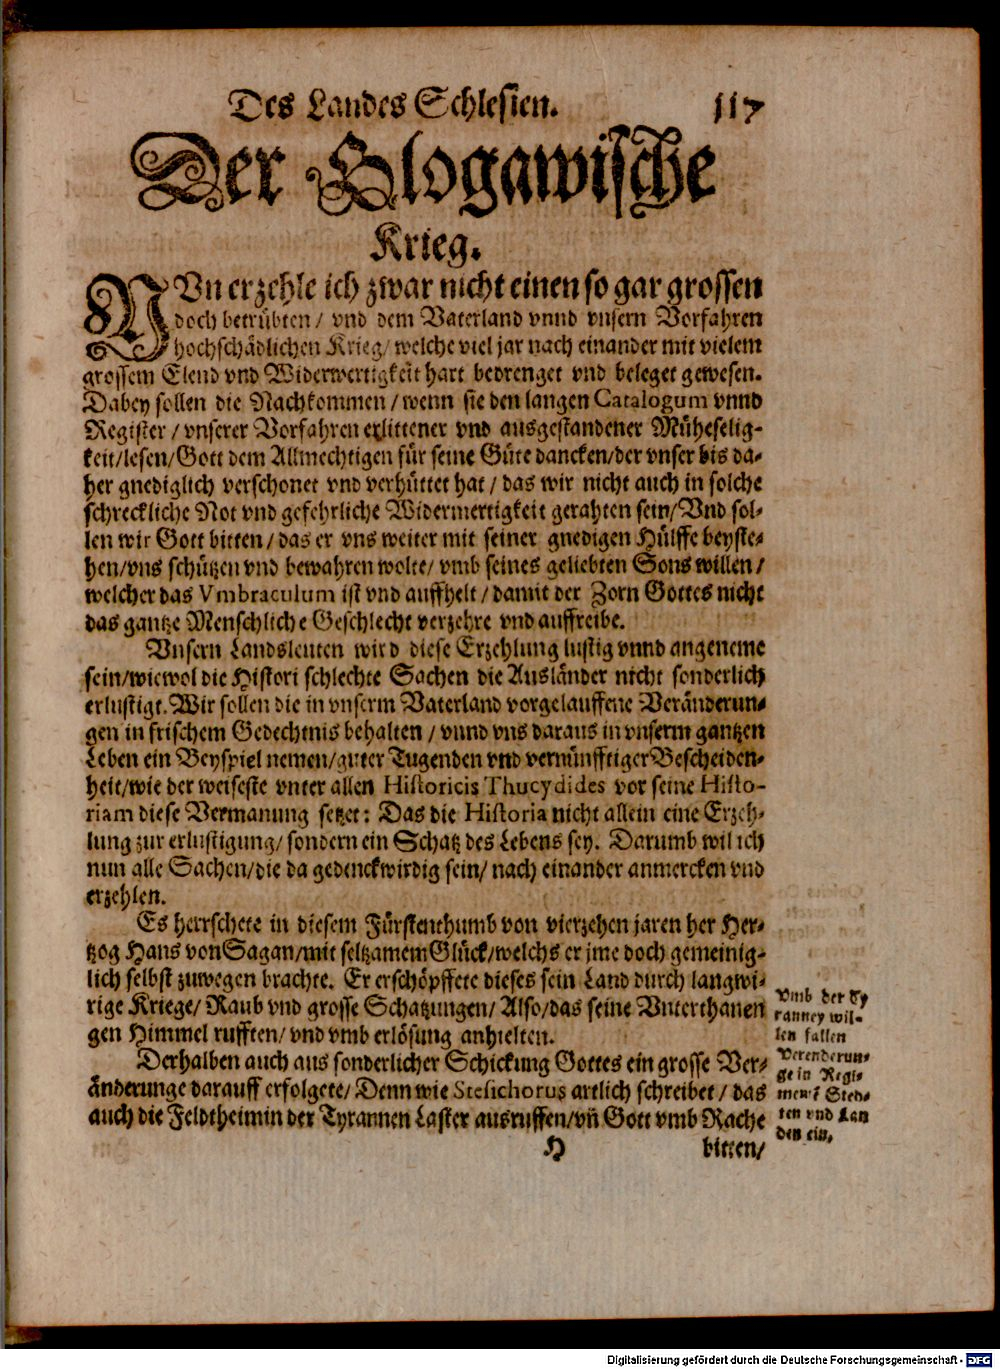 Des Landes Schlesien. 117
Der Glogawische
Krieg.
NVn erzehle ich zwar nicht einen so gar grossen
doch betrübten / vnd dem Vaterland vnnd vnsern Vorfahren
hochschädlichen Krieg / welche viel jar nach einander mit vielem
grossem Elend vnd Widerwertigkeit hart bedrenget vnd beleget gewesen.
Dabey sollen die Nachkommen / wenn sie den langen Catalogum vnnd
Register / vnserer Vorfahren erlittener vnd ausgestandener Müheselig-
keit / lesen / Gott dem Allmechtigen für seine Güte dancken / der vnser bis da-
her gnediglich verschonet vnd verhüttet hat / das wir nicht auch in solche
schreckliche Not vnd gefehrliche Widermertigkeit gerahten sein / Vnd sol-
len wir Gott bitten / das er vns weiter mit seiner gnedigen Hülffe beyste-
hen / vns schützen vnd bewahren wolte / vmb seines geliebten Sons willen /
welcher das Vmbraculum ist vnd auffhelt / damit der Zorn Gottes nicht
das gantze Menschliche Geschlecht verzehre vnd auffreibe.
Vnsern Landsleuten wird diese Erzehlung lustig vnnd angeneme
sein / wiewol die Histori schlechte Sachen die Ausländer nicht sonderlich
erlustigt. Wir sollen die in vnserm Vaterland vorgelauffene Veränderun-
gen in frischem Gedechtnis behalten / vnnd vns daraus in vnserm gantzen
Leben ein Beyspiel nemen / guter Tugenden vnd vernünfftiger Bescheiden-
heit / wie der weiseste vnter allen Historicis Thucydides vor seine Histo-
riam diese Vermanung setzet: Das die Historia nicht allein eine Erzeh-
lung zur erlustigung / sondern ein Schatz des Lebens sey. Darumb wil ich
nun alle Sachen / die da gedenckwirdig sein / nach einander anmercken vnd
erzehlen.
Es herrschete in diesem Fürstenthumb von vierzehen jaren her Her-
tzog Hans von Sagan / mit seltzamem Glück / welchs er jme doch gemeinig-
lich selbst zuwegen brachte. Er erschöpffete dieses sein Land durch langwi-
rige Kriege / Raub vnd grosse Schatzungen / Also / das seine Vnterthanen
gen Himmel rufften / vnd vmb erlösung anhielten.
Derhalben auch aus sonderlicher Schickung Gottes ein grosse Ver-
änderunge darauff erfolgete / Denn wie Stesichorus artlich schreibet / das
auch die Feldtheimin der Tyrannen Laster ausruffen / vñ Gott vmb Rache
H bitten /
Vmb der Ty
ranney wil-
len fallen
Verenderun-
ge in Regi-
ment Sted-
ten vnd Lan
den ein.
Digitalisierung gefördert durch die Deutsche Forschungsgemeinschaft - DFG